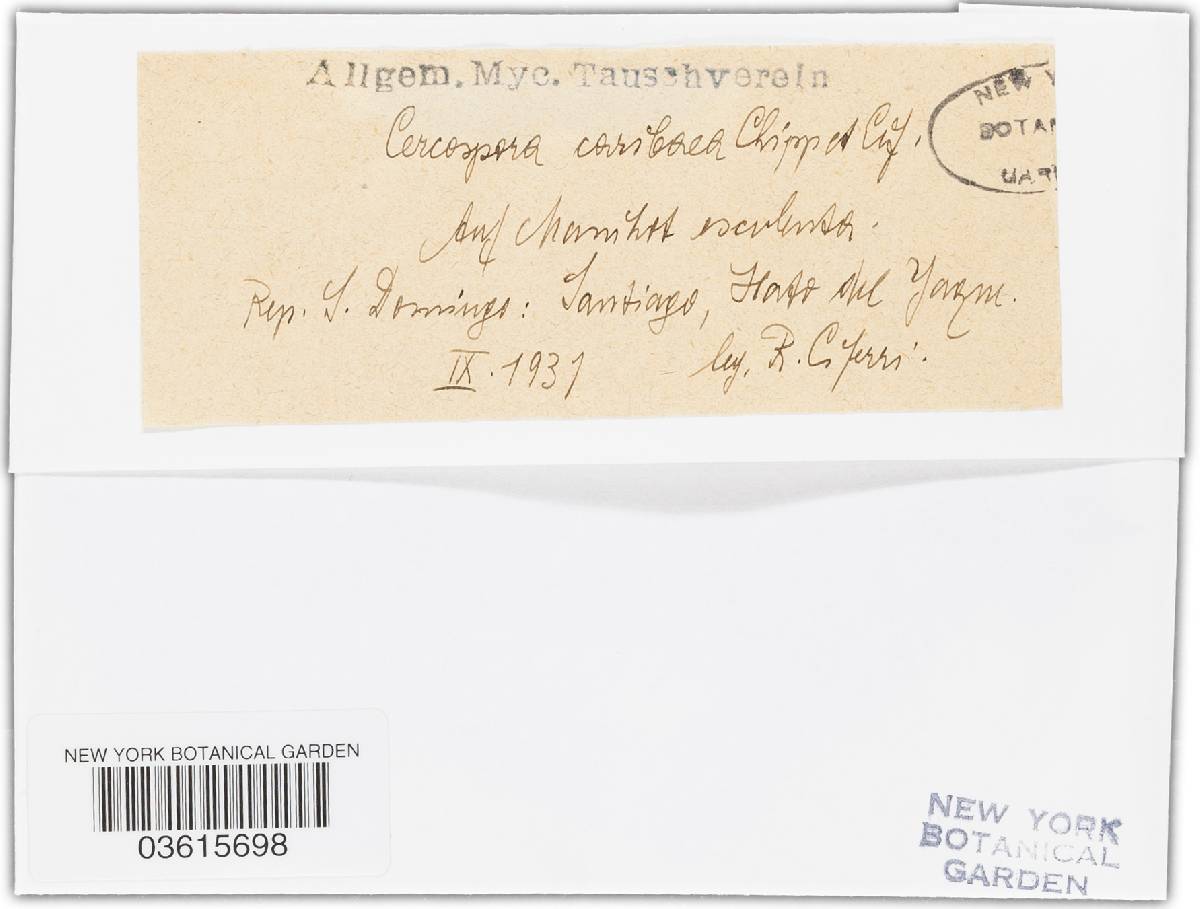 Allgem. Myc. Tauschverein
Cercospora caribaea Chipp et Cif.
NEW Y
BOTAN
GARD
Auf Manihot esculenta.
Rep. S. Domingo: Santiago, Hato del Yaque.
IX. 1931 leg. R. Ciferri.
NEW YORK BOTANICAL GARDEN
03615698
NEW YORK
BOTANICAL
GARDEN